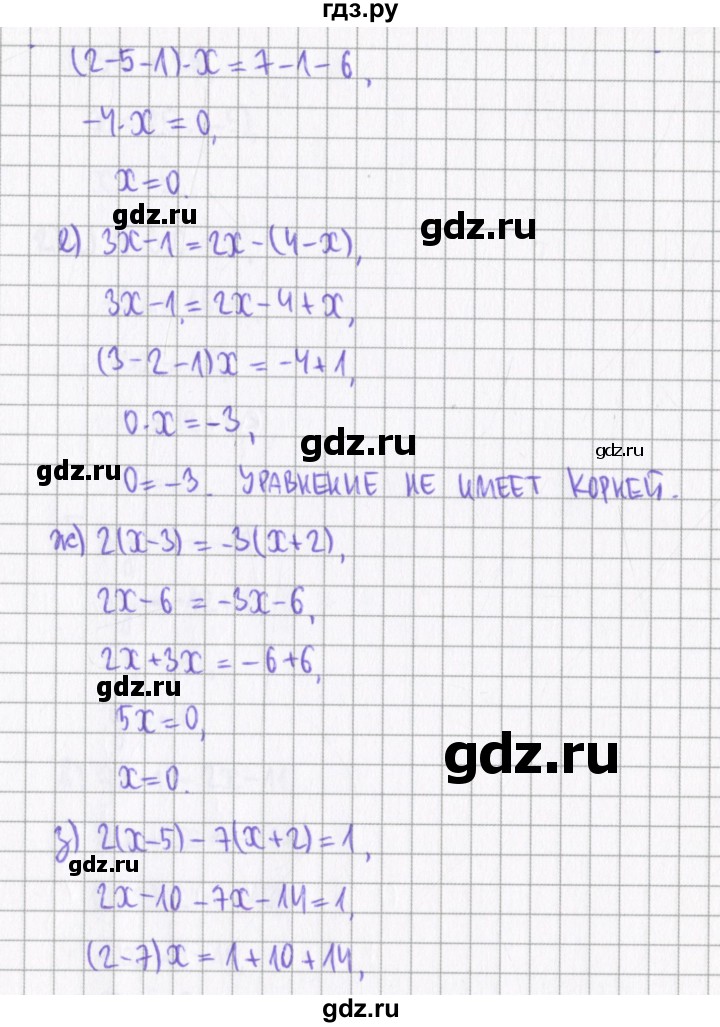 гдз.ру
(2-5-1)·x = 7-1-6,
-4·x = 0,
x=0.
gdz.ru
gdz.ru
е) 3x-1 = 2x-(4-x),
3x-1 = 2x-4+x,
(3-2-1)x = -4+1,
0·x = -3,
gdz.ru
gdz.ru
gdz.ru
0 = -3. УРАВНЕНИЕ НЕ ИМЕЕТ КОРНЕЙ.
ж) 2(x-3) = -3(x+2),
2x-6 = -3x-6,
2x+3x = -6+6,
gdz.ru
5x=0,
gdz.ru
x=0.
з) 2(x-5) - 7(x+2) = 1,
gdz.ru
2x-10-7x-14=1,
(2-7)x = 1+10+14,
gdz.ru